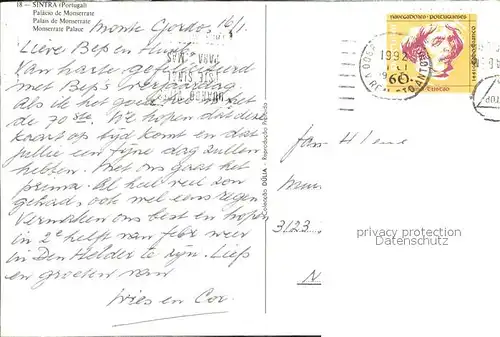 18 — SINTRA (Portugal)
Palácio de Monserrate
Palais de Monserrate
Monserrate Palace
Monte Gordo, 16/1.
Lieve Bep en
Van harte gefeliciteerd
met Bep's verjaardag.
Als ik het goed heb het
de 70ste. We hopen dat deze
kaart op tijd komt en dat
jullie een fijne dag zullen
hebben. Met ons gaat het
prima. Al heel veel zon
gehad, ook wel eens regen
Vermaken ons best en hopen
in 2e helft van febr weer
in Den Helder te zijn. Liefs
en groeten van
Wies en Cor.
Colecção DÚLIA - Reprodução
NAVEGADORES PORTUGUESES
1992
60.
Tristão
3123
N
privacy protection
Datenschutz